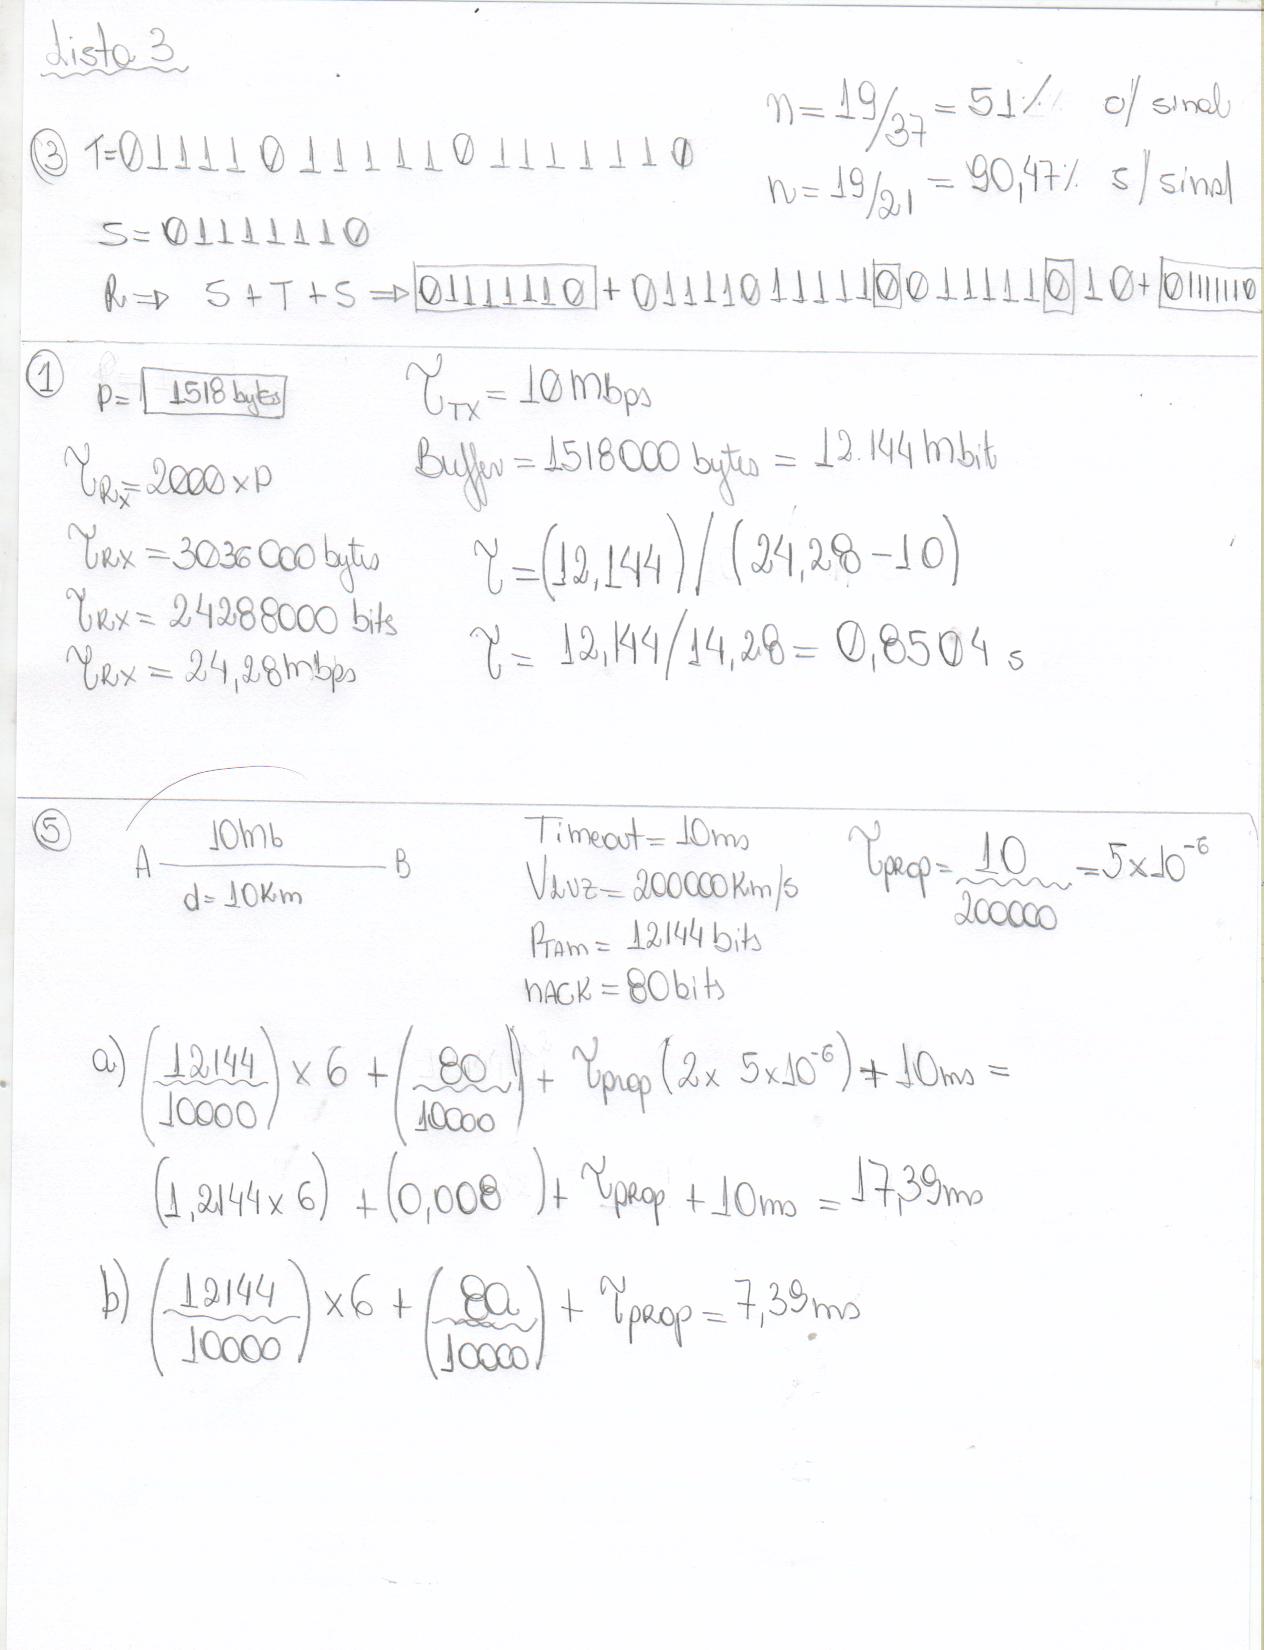 Lista 3
n = 19/37 = 51% c/ sinal
③ T=01111 0 11111 0 111111 0
n = 19/21 = 90,47% s/ sinal
S = 01111110
R ⇒ S + T + S ⇒ 01111110 + 011110111110011111010 + 01111110
① P = 1518 bytes
τTX = 10 mbps
Buffer = 1518000 bytes = 12.144 mbit
τRX = 2000 x P
τRX = 3036000 bytes
τ = (12,144) / (24,28 - 10)
τRX = 24288000 bits
τ = 12,144/14,28 = 0,8504 s
τRX = 24,28 mbps
⑤ A 10mb B
d = 10Km
Timeout = 10ms
VLUZ = 200000 Km/s
PTAM = 12144 bits
nACK = 80 bits
τPROP = 10/200000 = 5x10⁻⁶
a) (12144/10000) x 6 + (80/10000) + τprop (2x 5x10⁻⁶) + 10ms =
(1,2144 x 6) + (0,008) + τPROP + 10ms = 17,39ms
b) (12144/10000) x6 + (80/10000) + τPROP = 7,39ms